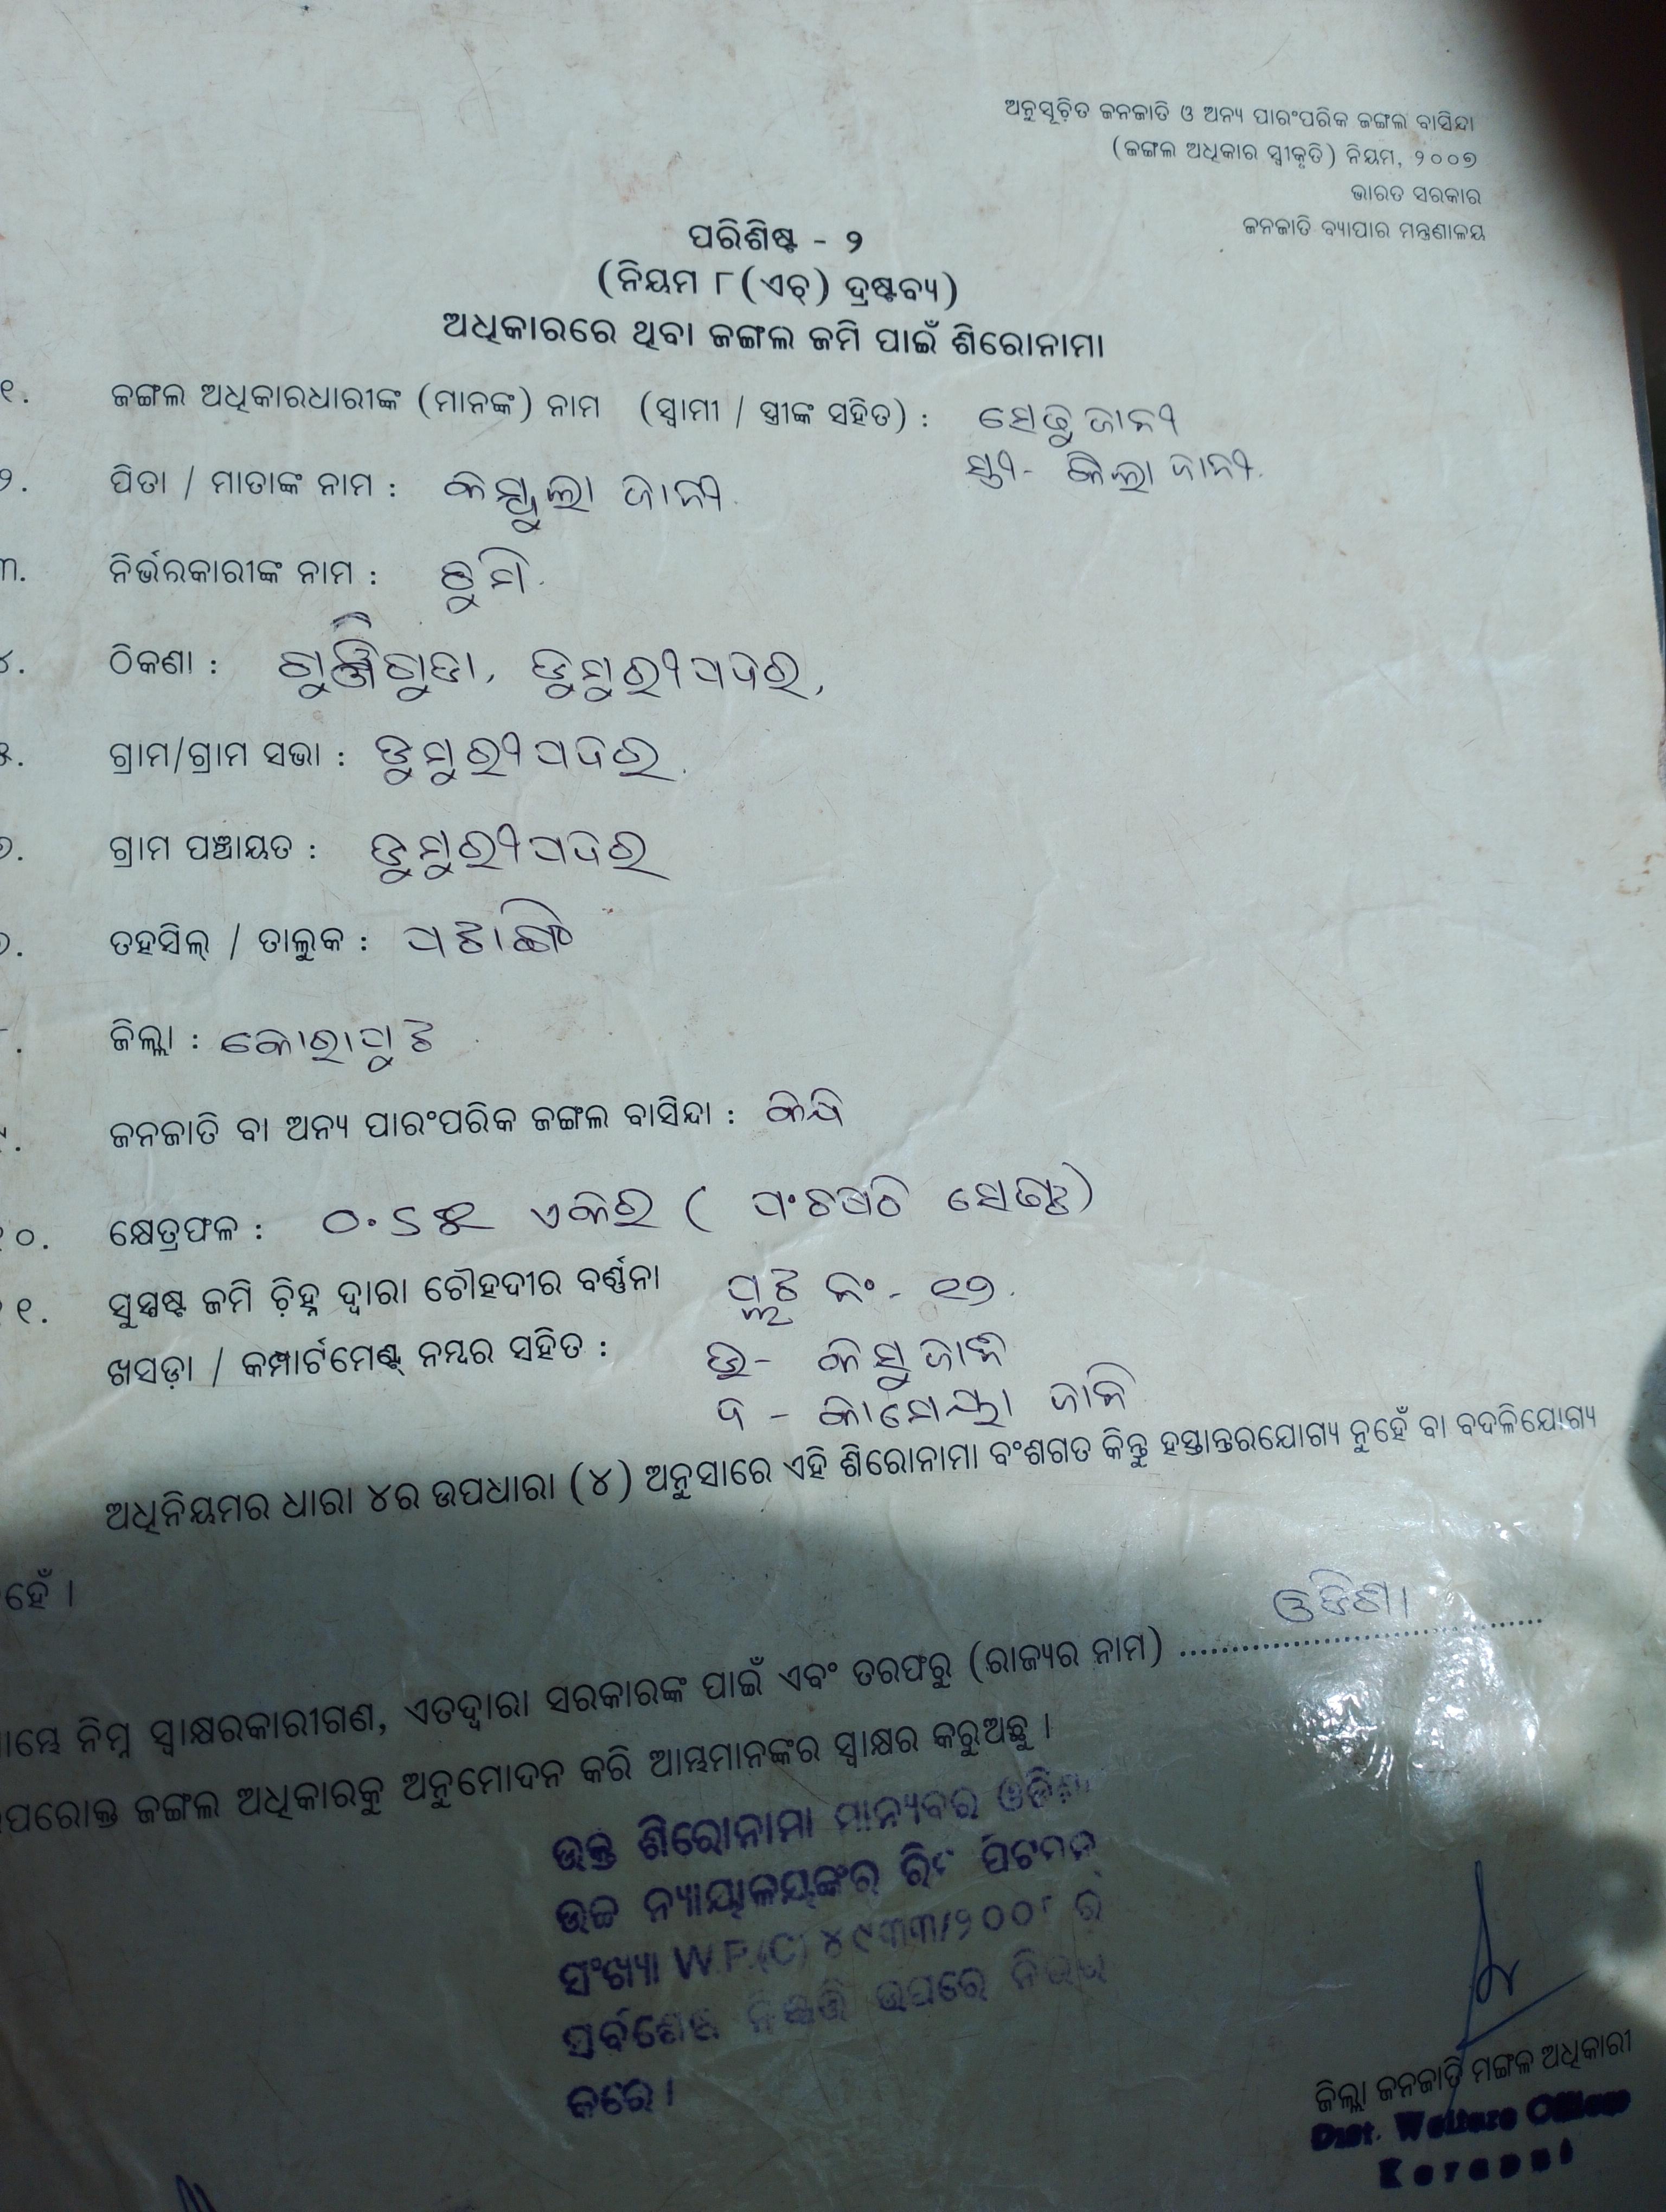 ଅନୁସୂଚିତ ଜନଜାତି ଓ ଅନ୍ୟ ପାରଂପରିକ ଜଙ୍ଗଲ ବାସିନ୍ଦା
(ଜଙ୍ଗଲ ଅଧିକାର ସ୍ୱୀକୃତି) ନିୟମ, ୨୦୦୭
ଭାରତ ସରକାର
ଜନଜାତି ବ୍ୟାପାର ମନ୍ତ୍ରଣାଳୟ
ପରିଶିଷ୍ଟ - ୨
(ନିୟମ ୮(ଏଚ୍) ଦ୍ରଷ୍ଟବ୍ୟ)
ଅଧିକାରରେ ଥିବା ଜଙ୍ଗଲ ଜମି ପାଇଁ ଶିରୋନାମା
୧. ଜଙ୍ଗଲ ଅଧିକାରଧାରୀଙ୍କ (ମାନଙ୍କ) ନାମ (ସ୍ୱାମୀ / ସ୍ତ୍ରୀଙ୍କ ସହିତ) : ଜାନୀ
ସ୍ତ୍ରୀ- ଜାନୀ
୨. ପିତା / ମାତାଙ୍କ ନାମ : ଜାନୀ
୩. ନିର୍ଭରକାରୀଙ୍କ ନାମ :
୪. ଠିକଣା : ଗୁଞ୍ଜିଗୁଡା, ଡୁମୁରୀପଦର,
୫. ଗ୍ରାମ/ଗ୍ରାମ ସଭା : ଡୁମୁରୀପଦର
୬. ଗ୍ରାମ ପଞ୍ଚାୟତ : ଡୁମୁରୀପଦର
୭. ତହସିଲ୍ / ତାଲୁକ : ପଟାଙ୍ଗି
୮. ଜିଲ୍ଲା : କୋରାପୁଟ
୯. ଜନଜାତି ବା ଅନ୍ୟ ପାରଂପରିକ ଜଙ୍ଗଲ ବାସିନ୍ଦା :
୧୦. କ୍ଷେତ୍ରଫଳ : ୦.୬୫ ଏକର ( ପଂଚଷଠି ସେଣ୍ଟ)
୧୧. ସୁସ୍ପଷ୍ଟ ଜମି ଚିହ୍ନ ଦ୍ୱାରା ଚୌହଦୀର ବର୍ଣ୍ଣନା ପ୍ଲଟ ନଂ - ୧୬
ଖସଡ଼ା / କମ୍ପାର୍ଟମେଣ୍ଟ୍ ନମ୍ବର ସହିତ : ଉ- ଜାନି
ଦ - ଜାନି
ଅଧିନିୟମର ଧାରା ୪ର ଉପଧାରା (୪) ଅନୁସାରେ ଏହି ଶିରୋନାମା ବଂଶଗତ କିନ୍ତୁ ହସ୍ତାନ୍ତରଯୋଗ୍ୟ ନୁହେଁ ବା ବଦଳିଯୋଗ୍ୟ
ହେଁ ।
ଓଡିଶା
ନିମ୍ନ ସ୍ୱାକ୍ଷରକାରୀଗଣ, ଏତଦ୍ୱାରା ସରକାରଙ୍କ ପାଇଁ ଏବଂ ତରଫରୁ (ରାଜ୍ୟର ନାମ) ..............................
ପରୋକ୍ତ ଜଙ୍ଗଲ ଅଧିକାରକୁ ଅନୁମୋଦନ କରି ଆମ୍ଭମାନଙ୍କର ସ୍ୱାକ୍ଷର କରୁଅଛୁ ।
ଉକ୍ତ ଶିରୋନାମା ମାନ୍ୟବର ଓଡିଶା
ଉଚ୍ଚ ନ୍ୟାୟାଳୟଙ୍କର ରିଟ ପିଟିସନ୍
ସଂଖ୍ୟା W.P.(C) ୪୯୩୩/୨୦୦୮ ର
ସର୍ବଶେଷ ନିଷ୍ପତ୍ତି ଉପରେ ନିର୍ଭର
କରେ ।
ଜିଲ୍ଲା ଜନଜାତି ମଙ୍ଗଳ ଅଧିକାରୀ
Dist. Welfare Officer
Koraput